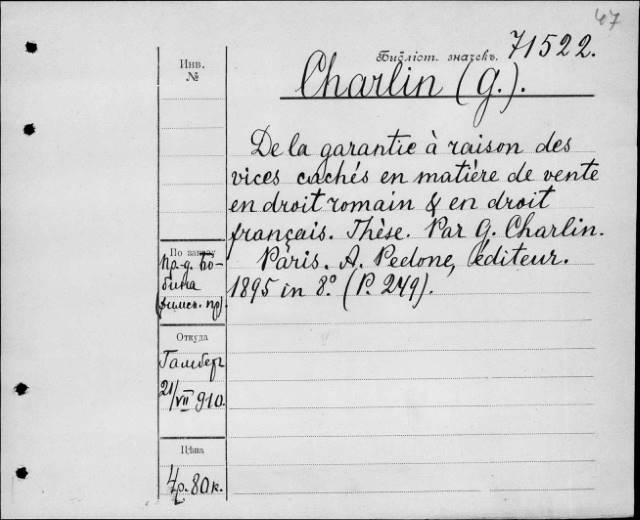 47
Библіот. значекъ. 71522.
Инв.
№
Charlin (G.).
De la garantie à raison des
vices cachés en matière de vente
en droit romain & en droit
français. Thèse. Par G. Charlin.
Paris. A. Pedone, éditeur.
1895 in 8º. (P. 249).
По заказу
пр-д. Бо-
бина
Откуда
Гамбер
21/VII 910.
Цѣна
4р. 80к.